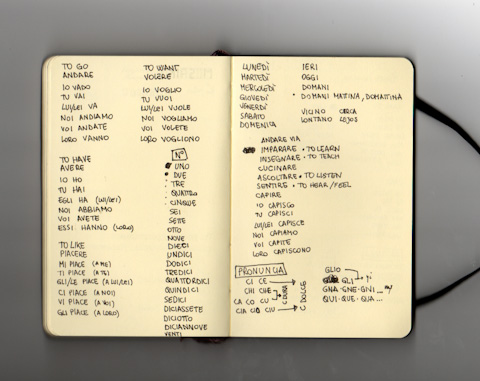 TO GO
ANDARE
IO VADO
TU VAI
LUI/LEI VA
NOI ANDIAMO
VOI ANDATE
LORO VANNO
TO HAVE
AVERE
IO HO
TU HAI
EGLI HA (LUI/LEI)
NOI ABBIAMO
VOI AVETE
ESSI HANNO (LORO)
TO LIKE
PIACERE
MI PIACE (A ME)
TI PIACE (A TE)
GLI/LE PIACE (A LUI/LEI)
CI PIACE (A NOI)
VI PIACE (A VOI)
GLI PIACE (A LORO)
TO WANT
VOLERE
IO VOGLIO
TU VUOI
LUI/LEI VUOLE
NOI VOGLIAMO
VOI VOLETE
LORO VOGLIONO
Nº
UNO
DUE
TRE
QUATTRO
CINQUE
SEI
SETTE
OTTO
NOVE
DIECI
UNDICI
DODICI
TREDICI
QUATTORDICI
QUINDICI
SEDICI
DICIASSETE
DICIOTTO
DICIANNOVE
VENTI
LUNEDÌ IERI
MARTEDÌ OGGI
MERCOLEDÌ DOMANI
GIOVEDÌ DOMANI MATTINA, DOMATTINA
VENERDÌ
SABATO VICINO CERCA
DOMENICA LONTANO LEJOS
ANDARE VIA
IMPARARE • TO LEARN
INSEGNARE • TO TEACH
CUCINARE
ASCOLTARE • TO LISTEN
SENTIRE • TO HEAR/FEEL
CAPIRE
IO CAPISCO
TU CAPISCI
LUI/LEI CAPISCE
NOI CAPIAMO
VOI CAPITE
LORO CAPISCONO
PRONUNCIA
CI CE
CHI CHE
CA CO CU
CIA CIO CIU
C DURA
C DOLCE
GLIO
GLI
GNA • GNE • GNI ... ñ
QUI • QUE • QUA ...